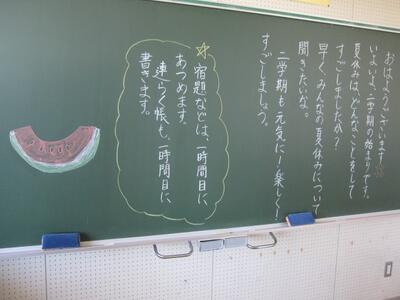 おはようございます!
いよいよ、二学期の始まりです。
夏休みは、どんなことをして
すごしましたか?
早く、みんなの夏休みについて
聞きたいな。
二学期も元気に!楽しく!
すごしましょう。
☆宿題などは、一時間目に
あつめます。
連らく帳も、一時間目に、
書きます。